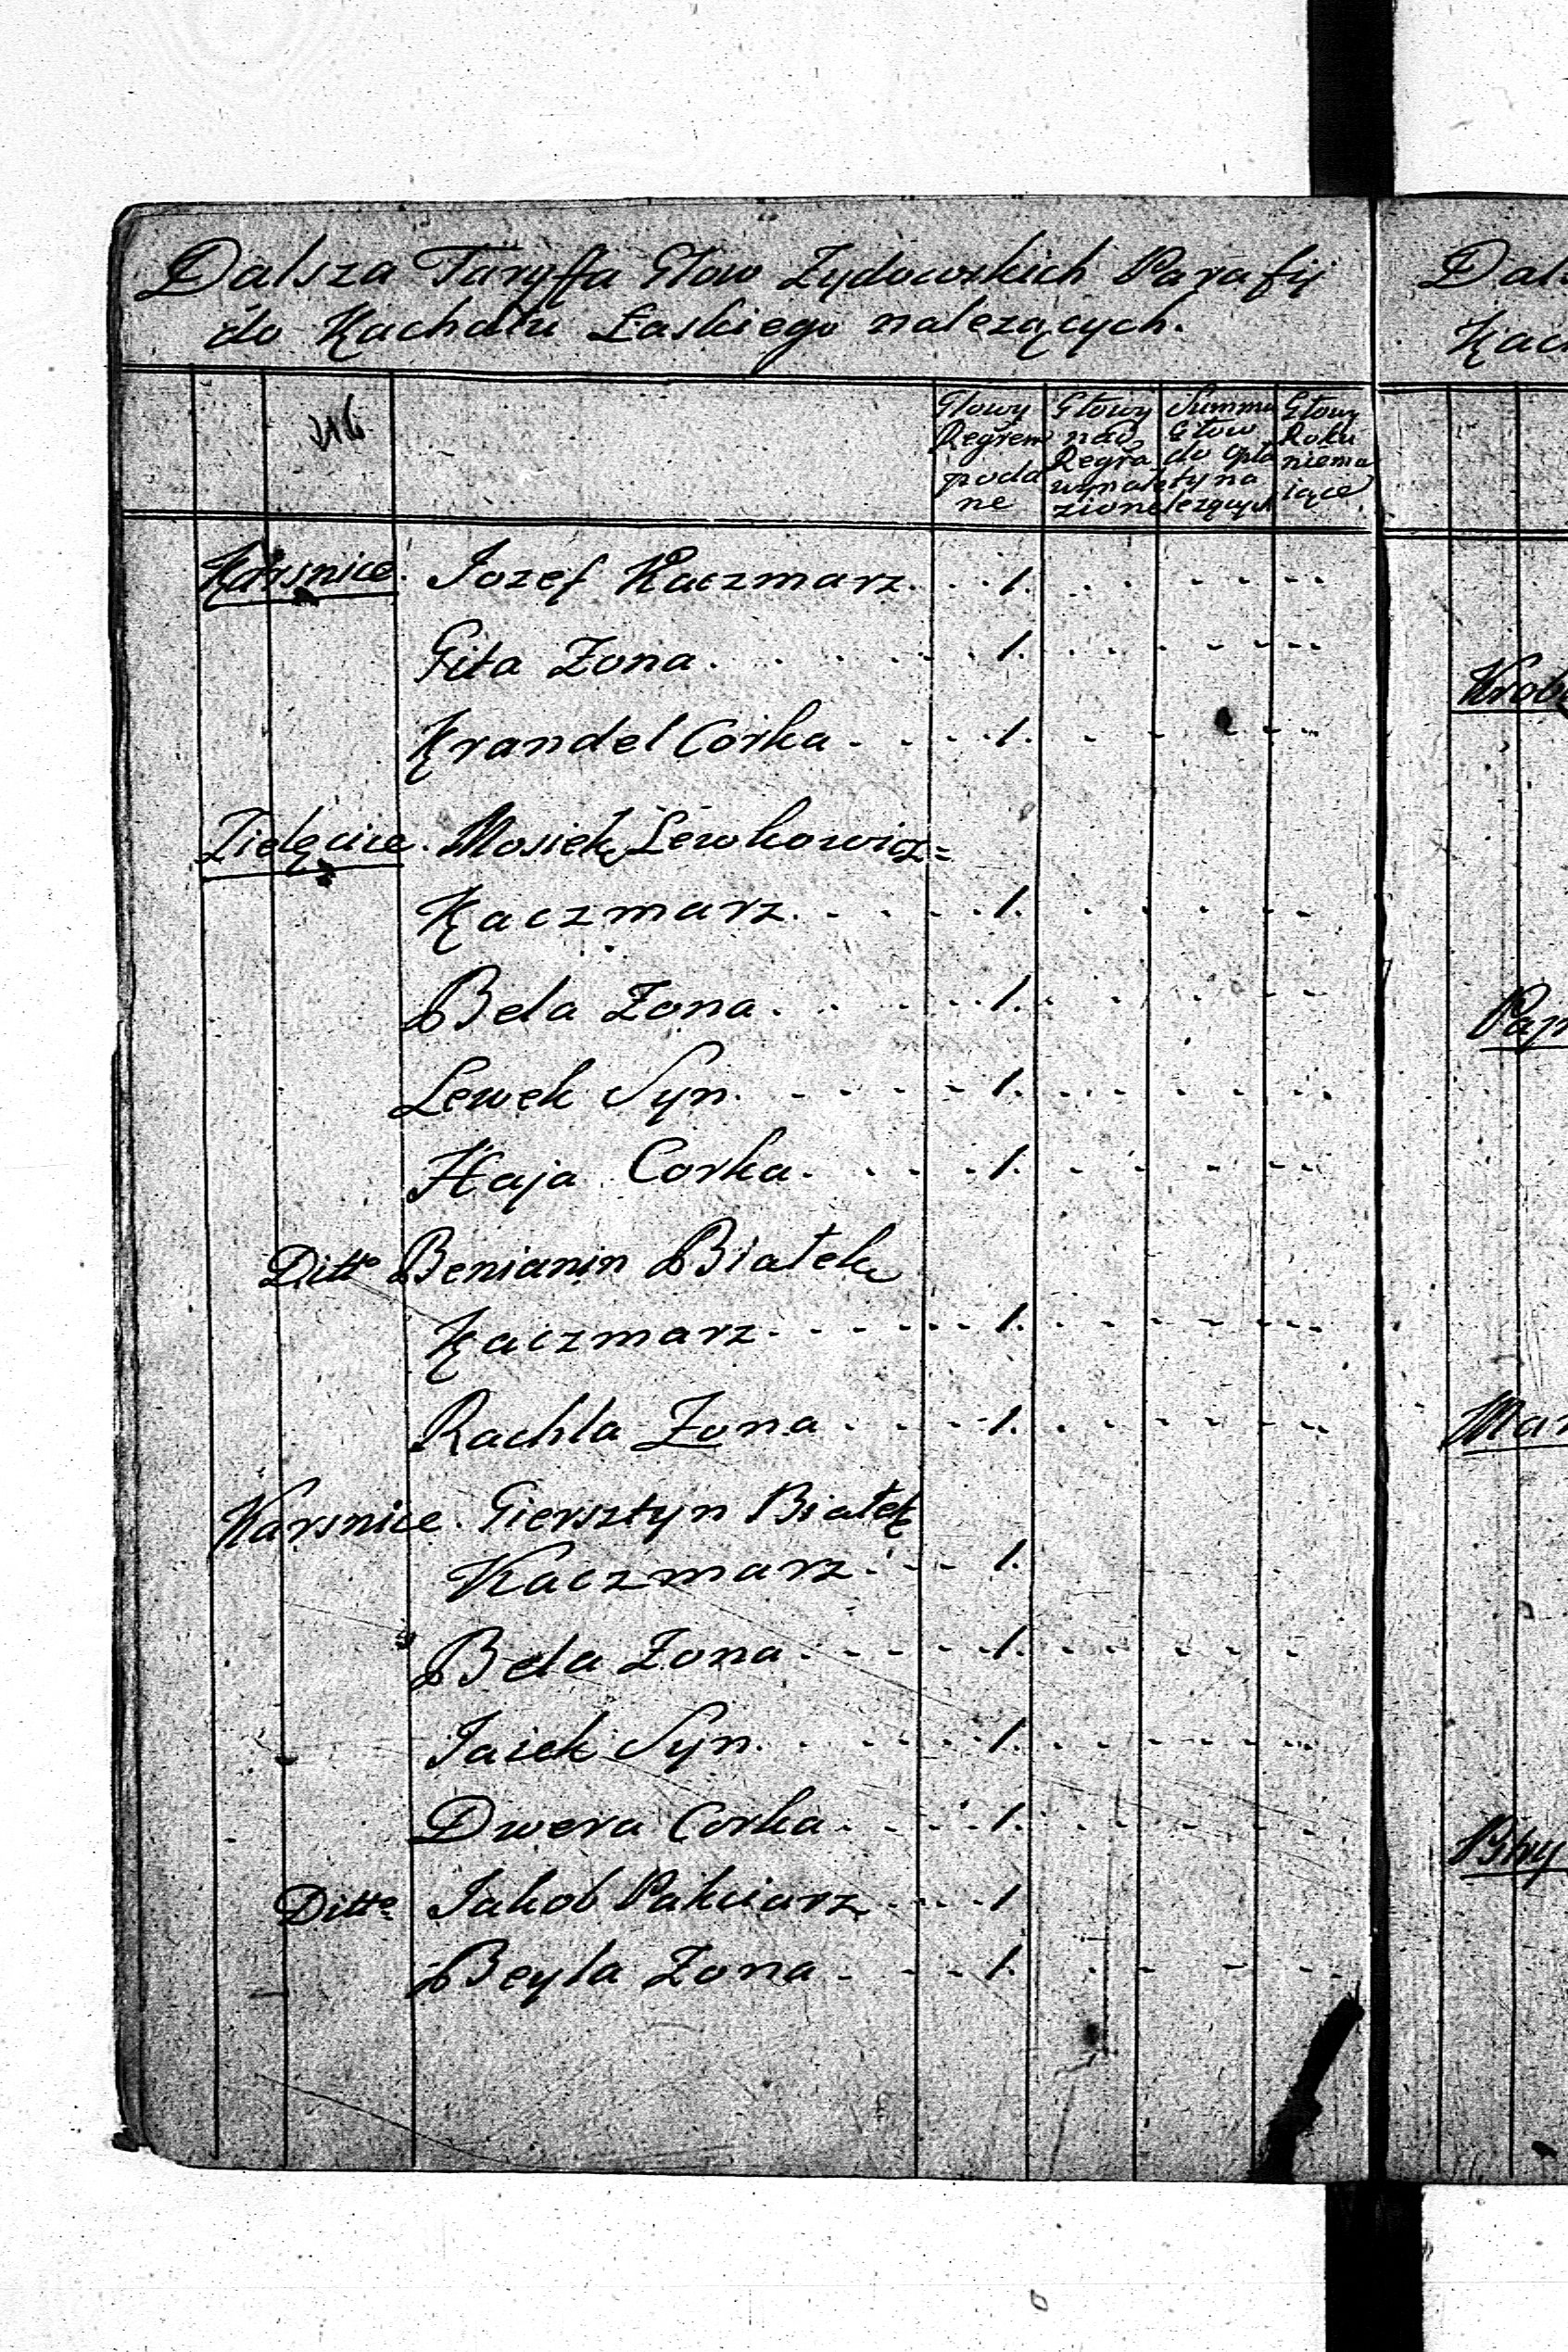 Dalsza Taryffa Głow Zydowskich Parafij
do Kachału Łaskiego nalezących.
Głowy Regrem podane
Głowy nad Regra wynalezione
Summa Głow do Opłaty nalezących
Głowy Roku niemaiące
Karsnice. Jozef Kaczmarz. 1.
Gita Zona. 1.
Krandel Corka 1.
Zielęcice. Mosiek Lewkowicz=
Kaczmarz. 1.
Bela Zona. 1.
Lewek Syn. 1.
Haja Corka. 1.
Ditto Benianin Białek
Kaczmarz. 1.
Rachla Zona 1.
Karsnice. Giersztyn Białek
Kaczmarz. 1.
Bela Zona. 1.
Jacek Syn. 1.
Dwera Corka. 1.
Ditto Jakob Pakciarz 1
Beyla Zona 1.
Dal
Kac